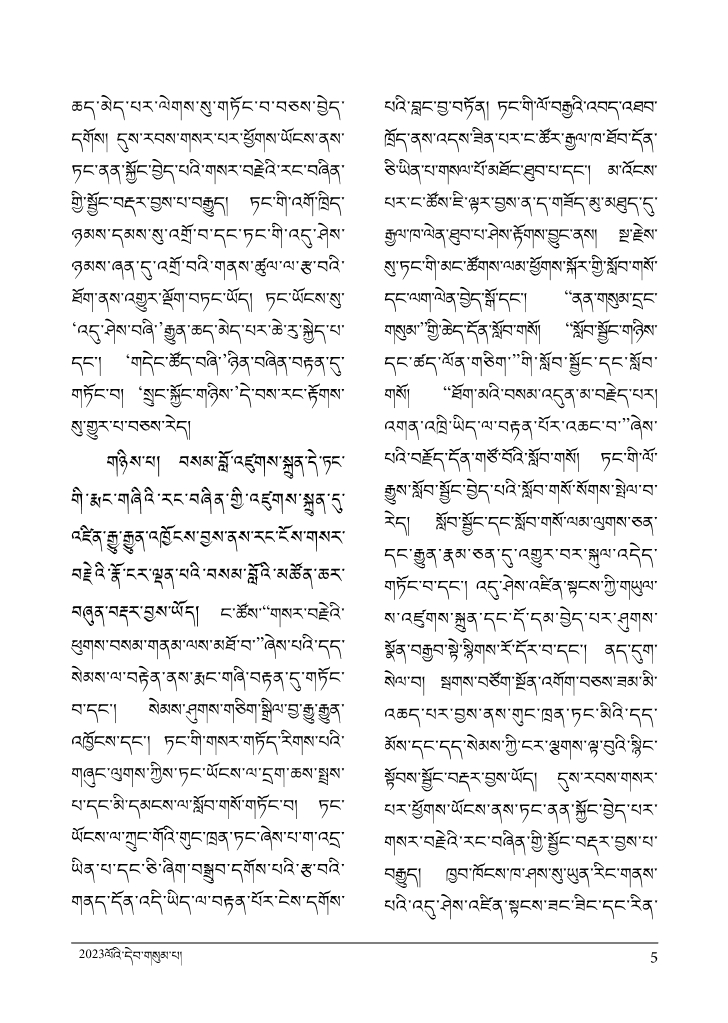 ཆད་མེད་པར་ལེགས་སུ་གཏོང་བ་བཅས་བྱེད་
དགོས། དུས་རབས་གསར་པར་ཕྱོགས་ཡོངས་ནས་
ཏང་ནན་སྐྱོང་བྱེད་པའི་གསར་བརྗེའི་རང་བཞིན་
གྱི་སྦྱོང་བརྡར་བྱས་པ་བརྒྱུད། ཏང་གི་འགོ་ཁྲིད་
ཉམས་དམས་སུ་འགྲོ་བ་དང་ཏང་གི་འདུ་ཤེས་
ཉམས་ཞན་དུ་འགྲོ་བའི་གནས་ཚུལ་ལ་རྩ་བའི་
ཐོག་ནས་འགྱུར་ལྡོག་བཏང་ཡོད། ཏང་ཡོངས་སུ་
‘འདུ་ཤེས་བཞི་’རྒྱུན་ཆད་མེད་པར་ཆེ་རུ་སྐྱེད་པ་
དང་། ‘གདེང་ཚོད་བཞི་’ཉིན་བཞིན་བརྟན་དུ་
གཏོང་བ། ‘སྲུང་སྐྱོང་གཉིས་’དེ་བས་རང་རྟོགས་
སུ་གྱུར་པ་བཅས་རེད།
གཉིས་པ། བསམ་བློ་འཛུགས་སྐྲུན་དེ་ཏང་
གི་རྨང་གཞིའི་རང་བཞིན་གྱི་འཛུགས་སྐྲུན་དུ་
འཛིན་རྒྱུ་རྒྱུན་འཁྱོངས་བྱས་ནས་རང་ངོས་གསར་
བརྗེའི་རྣོ་ངར་ལྡན་པའི་བསམ་བློའི་མཚོན་ཆར་
བཞུན་བརྡར་བྱས་ཡོད། ང་ཚོས་“གསར་བརྗེའི་
ཕུགས་བསམ་གནམ་ལས་མཐོ་བ་”ཞེས་པའི་དད་
སེམས་ལ་བརྟེན་ནས་རྨང་གཞི་བརྟན་དུ་གཏོང་
བ་དང་། སེམས་ཤུགས་གཅིག་སྒྲིལ་བྱ་རྒྱུ་རྒྱུན་
འཁྱོངས་དང་། ཏང་གི་གསར་གཏོད་རིགས་པའི་
གཞུང་ལུགས་ཀྱིས་ཏང་ཡོངས་ལ་དྲག་ཆས་སྤྲས་
པ་དང་མི་དམངས་ལ་སློབ་གསོ་གཏོང་བ། ཏང་
ཡོངས་ལ་ཀྲུང་གོའི་གུང་ཁྲན་ཏང་ཞེས་པ་ག་འདྲ་
ཡིན་པ་དང་ཅི་ཞིག་བསྒྲུབ་དགོས་པའི་རྩ་བའི་
གནད་དོན་འདི་ཡིད་ལ་བརྟན་པོར་ངེས་དགོས་
པའི་བླང་བྱ་བཏོན། ཏང་གི་ལོ་བརྒྱའི་འབད་འཐབ་
ཁྲོད་ནས་འདས་ཟིན་པར་ང་ཚོར་རྒྱལ་ཁ་ཐོབ་དོན་
ཅི་ཡིན་པ་གསལ་པོ་མཐོང་ཐུབ་པ་དང་། མ་འོངས་
པར་ང་ཚོས་ཇི་ལྟར་བྱས་ན་ད་གཟོད་མུ་མཐུད་དུ་
རྒྱལ་ཁ་ལེན་ཐུབ་པ་ཤེས་རྟོགས་བྱུང་ནས། སྔ་རྗེས་
སུ་ཏང་གི་མང་ཚོགས་ལམ་ཕྱོགས་སྐོར་གྱི་སློབ་གསོ་
དང་ལག་ལེན་བྱེད་སྒོ་དང་། “ནན་གསུམ་དྲང་
གསུམ་”གྱི་ཆེད་དོན་སློབ་གསོ། “སློབ་སྦྱོང་གཉིས་
དང་ཚད་ལོན་གཅིག་”གི་སློབ་སྦྱོང་དང་སློབ་
གསོ། “ཐོག་མའི་བསམ་འདུན་མ་བརྗེད་པར།
འགན་འཁྲི་ཡིད་ལ་བརྟན་པོར་འཆང་བ་”ཞེས་
པའི་བརྗོད་དོན་གཙོ་བོའི་སློབ་གསོ། ཏང་གི་ལོ་
རྒྱུས་སློབ་སྦྱོང་བྱེད་པའི་སློབ་གསོ་སོགས་སྤེལ་བ་
རེད། སློབ་སྦྱོང་དང་སློབ་གསོ་ལམ་ལུགས་ཅན་
དང་རྒྱུན་རྣམ་ཅན་དུ་འགྱུར་བར་སྐུལ་འདེད་
གཏོང་བ་དང་། འདུ་ཤེས་འཛིན་སྟངས་ཀྱི་གཡུལ་
ས་འཛུགས་སྐྲུན་དང་དོ་དམ་བྱེད་པར་ཤུགས་
སྣོན་བརྒྱབ་སྟེ་སྙིགས་རོ་དོར་བ་དང་། ནད་དུག་
སེལ་བ། སྦགས་བཙོག་སྔོན་འགོག་བཅས་ཟམ་མི་
འཆད་པར་བྱས་ནས་གུང་ཁྲན་ཏང་མིའི་དད་
མོས་དང་དད་སེམས་ཀྱི་ངར་ལྕགས་ལྟ་བུའི་སྙིང་
སྟོབས་སྦྱོང་བརྡར་བྱས་ཡོད། དུས་རབས་གསར་
པར་ཕྱོགས་ཡོངས་ནས་ཏང་ནན་སྐྱོང་བྱེད་པར་
གསར་བརྗེའི་རང་བཞིན་གྱི་སྦྱོང་བརྡར་བྱས་པ་
བརྒྱུད། ཁྱབ་ཁོངས་ཁ་ཤས་སུ་ཡུན་རིང་གནས་
པའི་འདུ་ཤེས་འཛིན་སྟངས་ཟང་ཟིང་དང་རིན་
2023ལོའི་དེབ་གསུམ་པ། 5